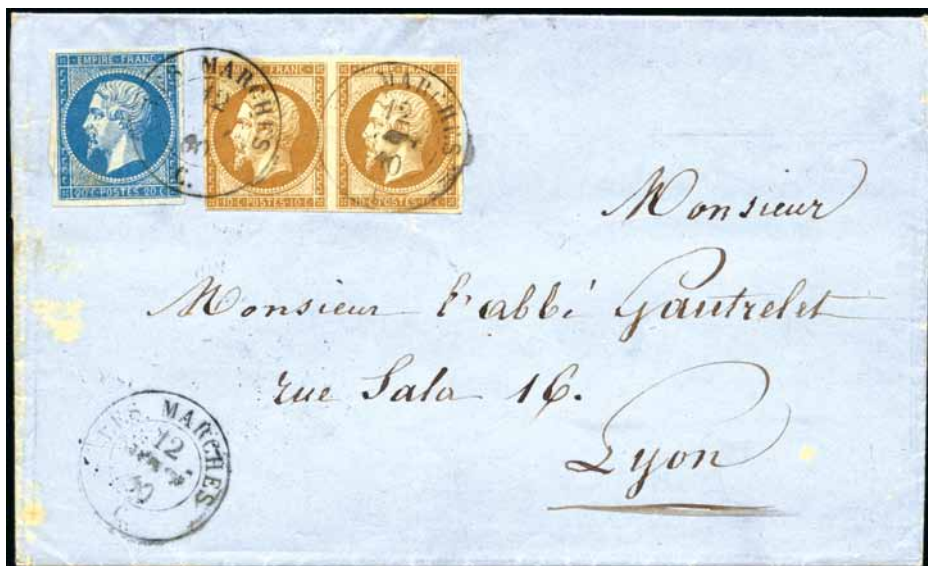 EMPIRE FRANC
20 C POSTES 20 C
MARCHES
12
FRANC
10 C POSTES 10 C
MARCHES
12
Monsieur
Monsieur l'abbé Gautrelet
rue Sala 16.
Lyon
LES MARCHES
12